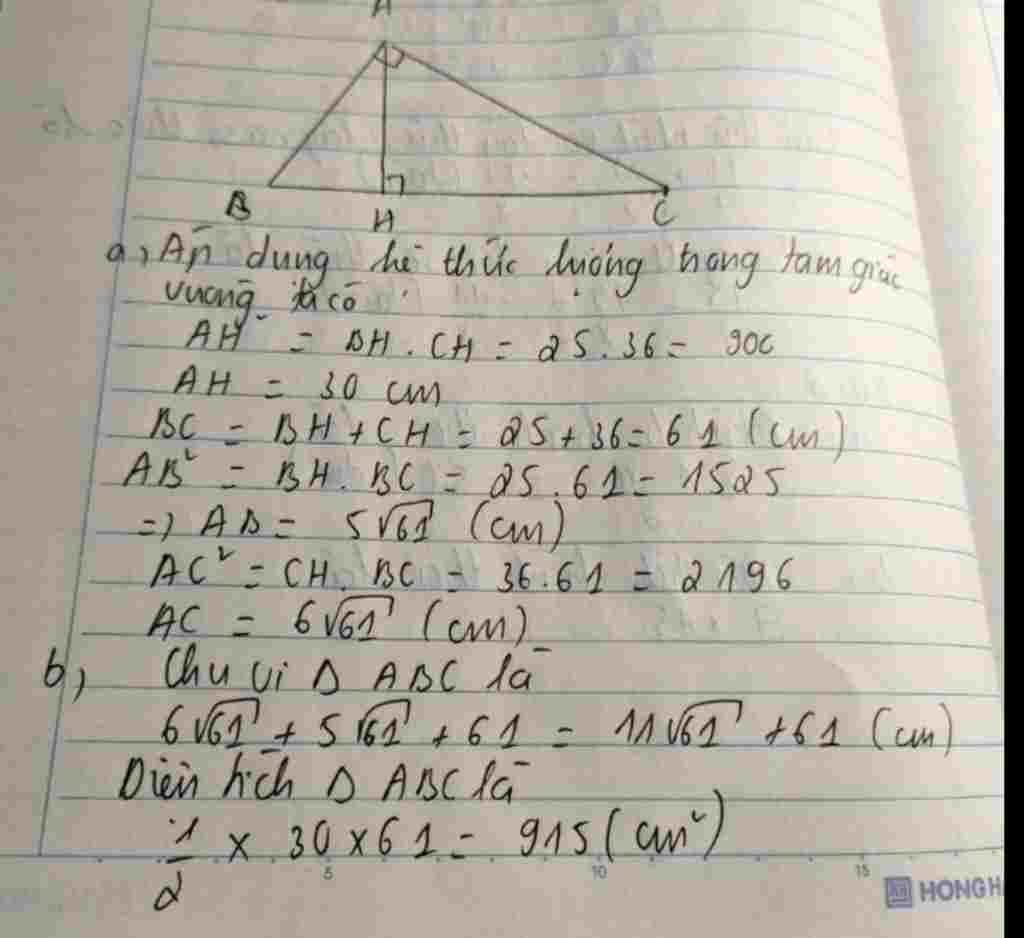 A
B
H
C
a, Áp dụng hệ thức lượng trong tam giác
vuông ta có
AH² = BH . CH = 25 . 36 = 900
AH = 30 cm
BC = BH + CH = 25 + 36 = 61 (cm)
AB² = BH . BC = 25 . 61 = 1525
=) AB = 5√61 (cm)
AC² = CH . BC = 36 . 61 = 2196
AC = 6√61 (cm)
b, Chu vi Δ ABC là
6√61 + 5√61 + 61 = 11√61 + 61 (cm)
Diện tích Δ ABC là
1/2 × 30 × 61 = 915 (cm²)
5 10 15
HONG H